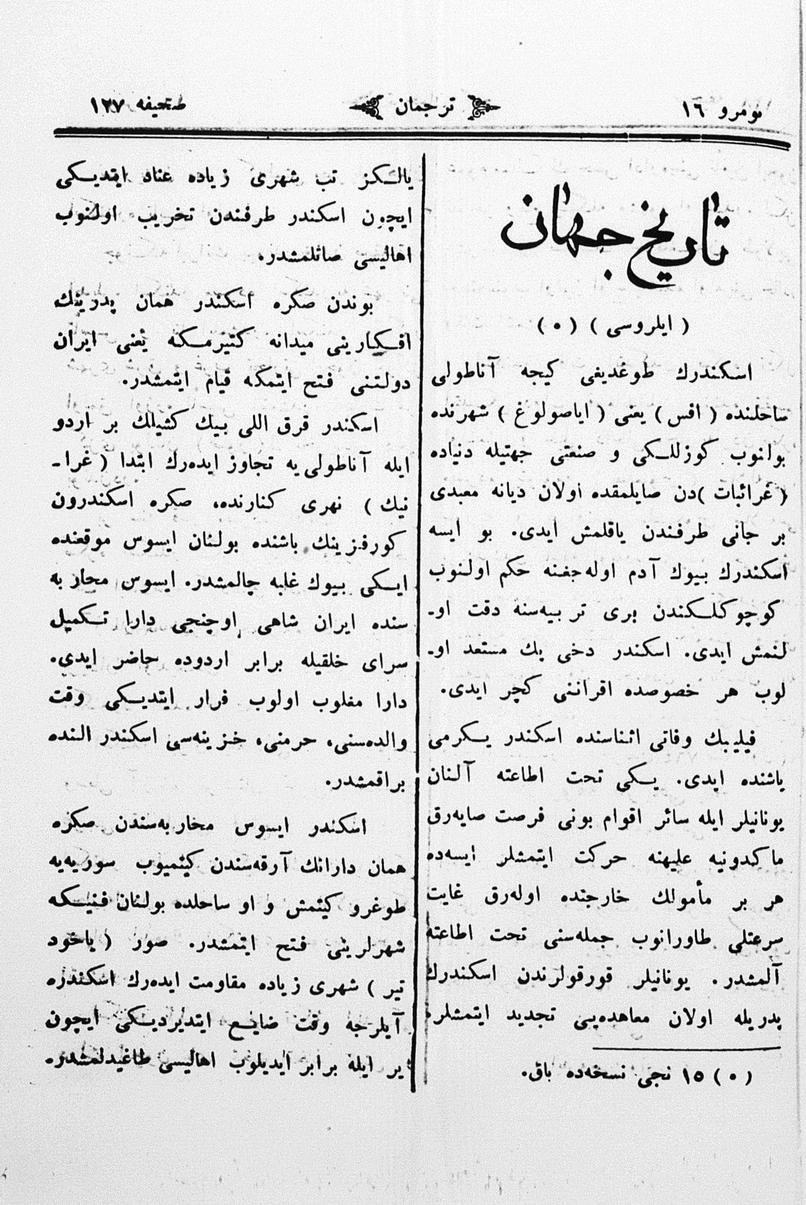 نومرو ١٦
ترجمان
صحيفه ١٢٧
تاريخ جهان
( ايلروسى ) ( ٥ )
اسكندرك طوغديغى كيجه آناطولى
ساحلنده ( افس ) يعنى ( اياصولوغ ) شهرنده
بولنوب كوزللـكى و صنعتى جهتيله دنياده
( غرائبات )دن صايلمقده اولان ديانه معبدى
بر جانى طرفندن ياقلمش ايدى. بو ايسه
اسكندرك بيوك آدم اوله‌جغنه حكم اولنوب
كوچوكلـكندن برى تربيه‌سنه دقت او-
لنمش ايدى. اسكندر دخى پك مستعد او-
لوب هر خصوصده اقراننى كچر ايدى.
فيليبك وفاتى اثناسنده اسكندر يـكرمى
ياشنده ايدى. يـكى تحت اطاعته آلنان
يونانيلر ايله سائر اقوام بونى فرصت صايه‌رق
ماكدونيه عليهنه حركت ايتمشلر ايسه‌ده
هر بر مأمولك خارجنده اوله‌رق غايت
سرعتلى طاورانوب جمله‌سنى تحت اطاعته
آلمشدر. يونانيلر قورقولرندن اسكندرك
پدريله اولان معاهده‌يى تجديد ايتمشلر.
( ٥ ) ١٥ نجى نسخه‌ده باق.
يالـكز تب شهرى زياده عناد ايتديـكى
ايچون اسكندر طرفندن تخريب اولنوب
اهاليسى صاتلمشدر.
بوندن صكره اسكندر همان پدرينك
افـكارينى ميدانه كتيرمـكه يعنى ايران
دولتنى فتح ايتمكه قيام ايتمشدر.
اسكندر قرق اللى بيك كشيلك بر اردو
ايله آناطولى‌يه تجاوز ايده‌رك ابتدا ( غرا-
نيك ) نهرى كنارنده، صكره اسكندرون
كورفزينك باشنده بولنان ايسوس موقعنده
ايـكى بيوك غلبه چالمشدر. ايسوس محاربه
سنده ايران شاهى اوچنجى دارا تـكميل
سراى خلقيله برابر اردوده حاضر ايدى.
دارا مغلوب اولوب فرار ايتديـكى وقت
والده‌سنى، حرمنى، خزينه‌سى اسكندر النده
براقمشدر.
اسكندر ايسوس محاربه‌سندن صكره
همان دارانك آرقه‌سندن كيتميوب سوريه‌يه
طوغرو كيتمش و او ساحلده بولنان فنيـكه
شهرلرينى فتح ايتمشدر. صور ( ياخود
تير ) شهرى زياده مقاومت ايده‌رك اسكندره
آيلرجه وقت ضايع ايتديرديـكى ايچون
ير ايله برابر ايديلوب اهاليسى طاغيدلمشدر.